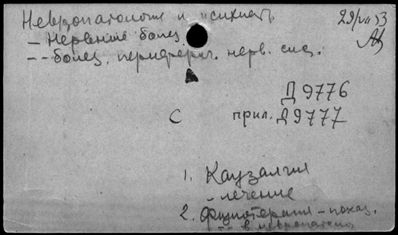 Невропатология и психиат. 29/VII 53
- Нервные болез.
-- болез. периферич. нерв. сис.
Д 9776
С прил. Д 9777
1. Каузалгия
- лечение
2. Физиотерапия - показ.
-- в невропатолог.